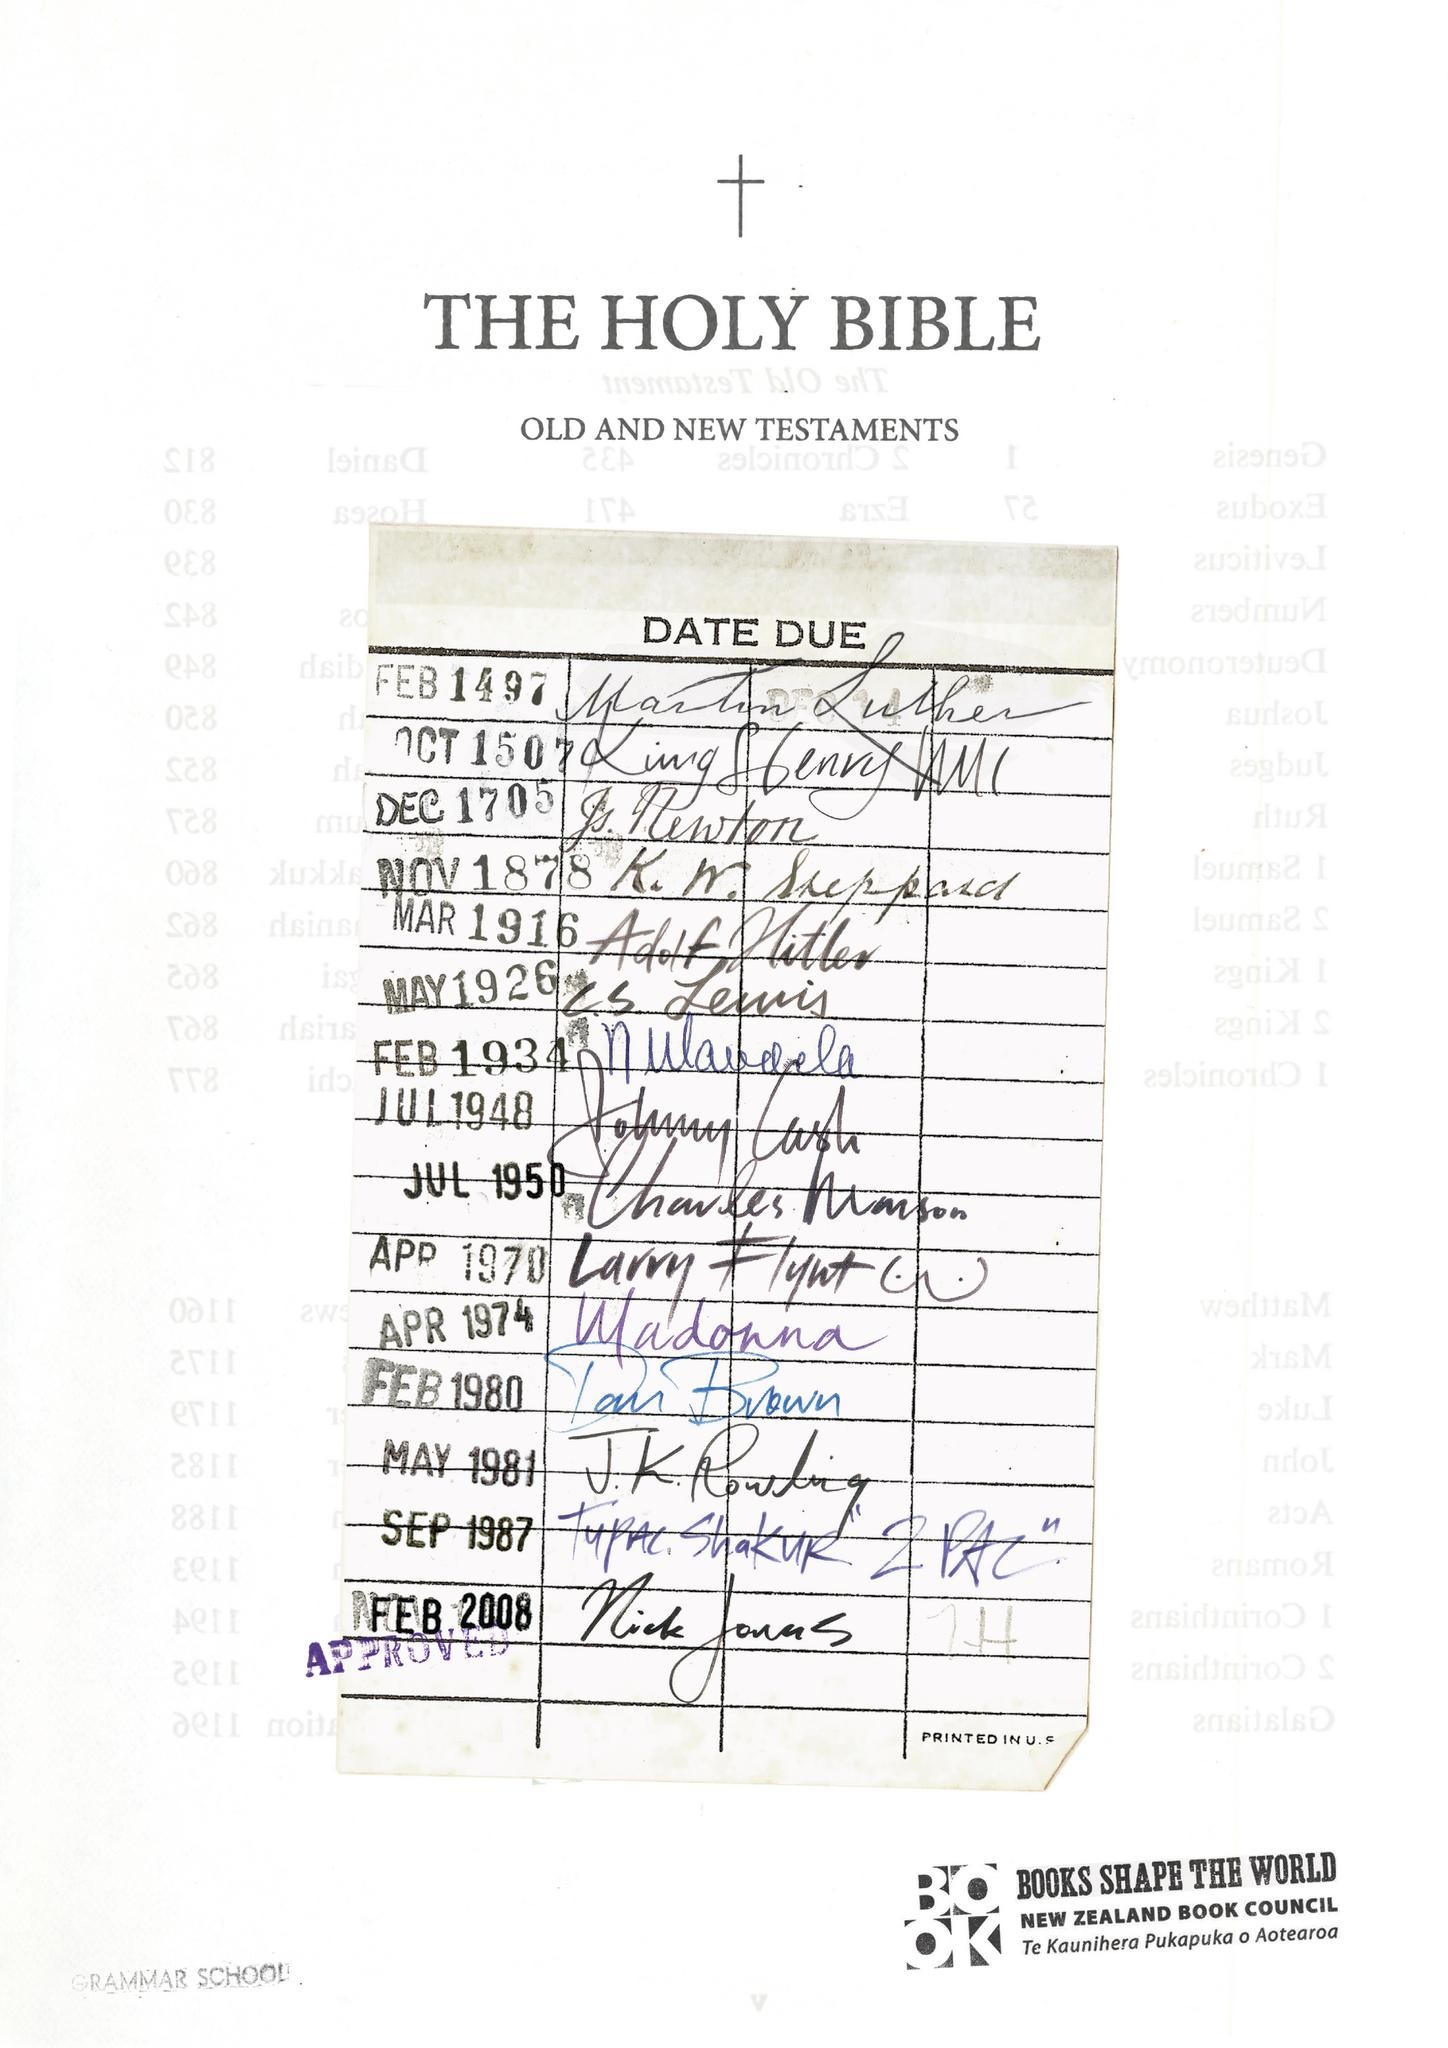 THE HOLY BIBLE
The Old Testament
OLD AND NEW TESTAMENTS
Genesis 1 2 Chronicles 435 Daniel 812
Exodus 57 Ezra 471 Hosea 830
Leviticus 839
Numbers os 842
DATE DUE
Deuteronomy diah 849
FEB 1497 Martin Luther
Joshua ah 850
OCT 1507 King Henry VIII
Judges ah 852
DEC 1705 Is. Newton
Ruth um 857
NOV 1878 K. W. Sheppard
1 Samuel akkuk 860
MAR 1916 Adolf Hitler
2 Samuel haniah 862
MAY 1926 C.S. Lewis
1 Kings gai 865
2 Kings ariah 867
FEB 1934 N Mandela
1 Chronicles chi 877
JUL 1948 Johnny Cash
JUL 1950 Charles Manson
APR 1970 Larry Flynt
Matthew ews 1160
APR 1974 Madonna
Mark 1175
FEB 1980 Dan Brown
Luke er 1179
MAY 1981 J.K. Rowling
John er 1185
Acts 1188
SEP 1987 Tupac. Shakur "2 PAC"
Romans 1193
FEB 2008 Nick Jonas JH
1 Corinthians 1194
APPROVED
2 Corinthians 1195
Galatians ation 1196
PRINTED IN U.S
BOOK
BOOKS SHAPE THE WORLD
NEW ZEALAND BOOK COUNCIL
Te Kaunihera Pukapuka o Aotearoa
GRAMMAR SCHOOL
v